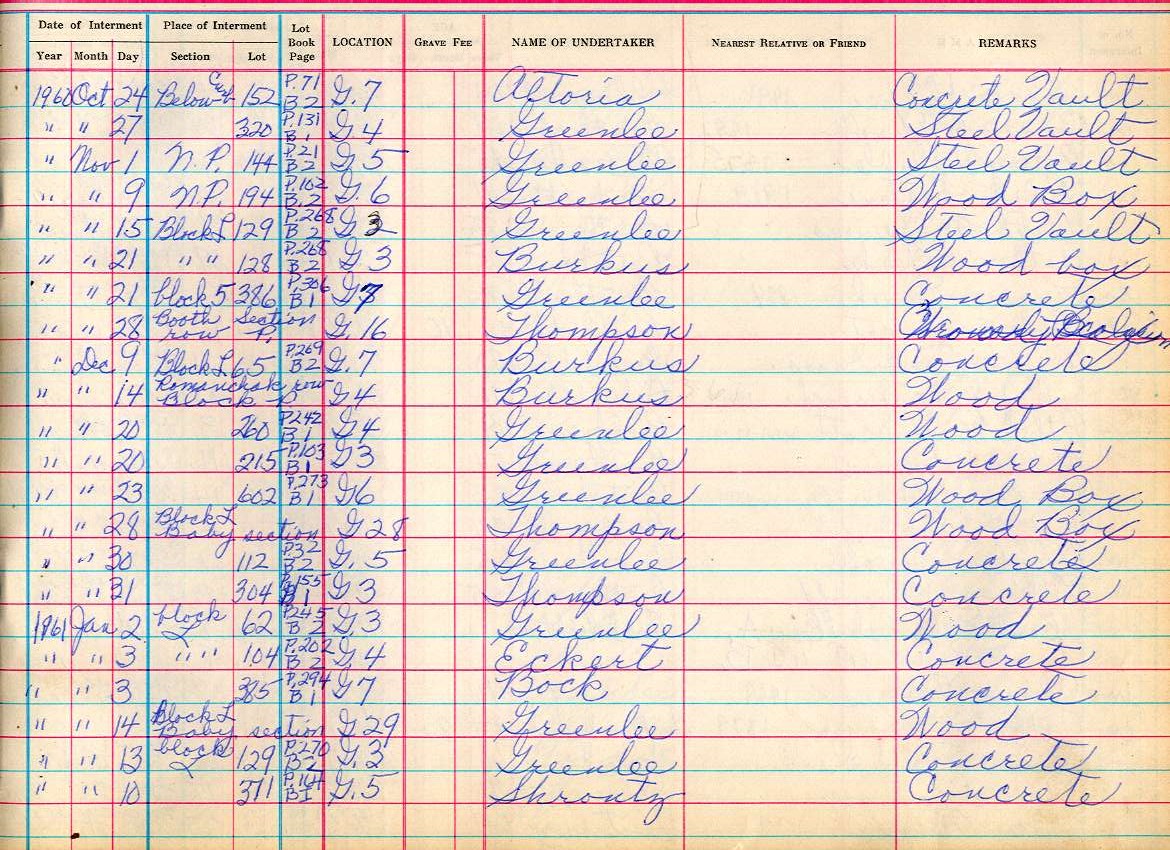 Date of Interment Place of Interment Lot Book Page LOCATION GRAVE FEE NAME OF UNDERTAKER NEAREST RELATIVE OR FRIEND REMARKS
Year Month Day Section Lot
1960 Oct 24 Below 152 P.71 B 2 G. 7 Concrete Vault
" " 27 320 P.131 B 1 G. 4 Greenlee Steel Vault
" Nov 1 N.P. 144 P.21 B2 G. 5 Greenlee Steel Vault
" " 9 N.P. 194 P.102 B.2 G. 6 Greenlee Wood Box
" " 15 Block L 129 P.268 B 2 G. Greenlee Steel Vault
" " 21 " " 128 P.268 B2 G. 3 Burkus Wood box
" " 21 block 5 386 P.306 B1 G Greenlee Concrete
" " 28 Booth Section row P. G. 16 Thompson
" Dec 9 Block L 65 P.269 B2 G. 7 Burkus Concrete
" " 14 Romanchak row Block P G 4 Burkus Wood
" " 20 260 P242 B 1 G 4 Greenlee Wood
" " 20 215 P.103 B1 G 3 Greenlee Concrete
" " 23 602 P.273 B1 G6 Greenlee Wood Box
" " 28 Block L Baby section G 28 Thompson Wood Box
" " 30 112 P.32 B2 G. 5 Greenlee Concrete
" " 31 304 P.155 B1 G 3 Thompson Concrete
1961 Jan 2 block L 62 P245 B 2 G. 3 Greenlee Wood
" " 3 " " 104 P.202 B 2 G. 4 Eckert Concrete
" " 3 385 P.294 B1 G 7 Bock Concrete
" " 14 Block L Baby section G. 29 Greenlee Wood
" " 13 block L 129 P.270 B2 G. Greenlee Concrete
" " 10 311 B1 G. 5 Shrontz Concrete